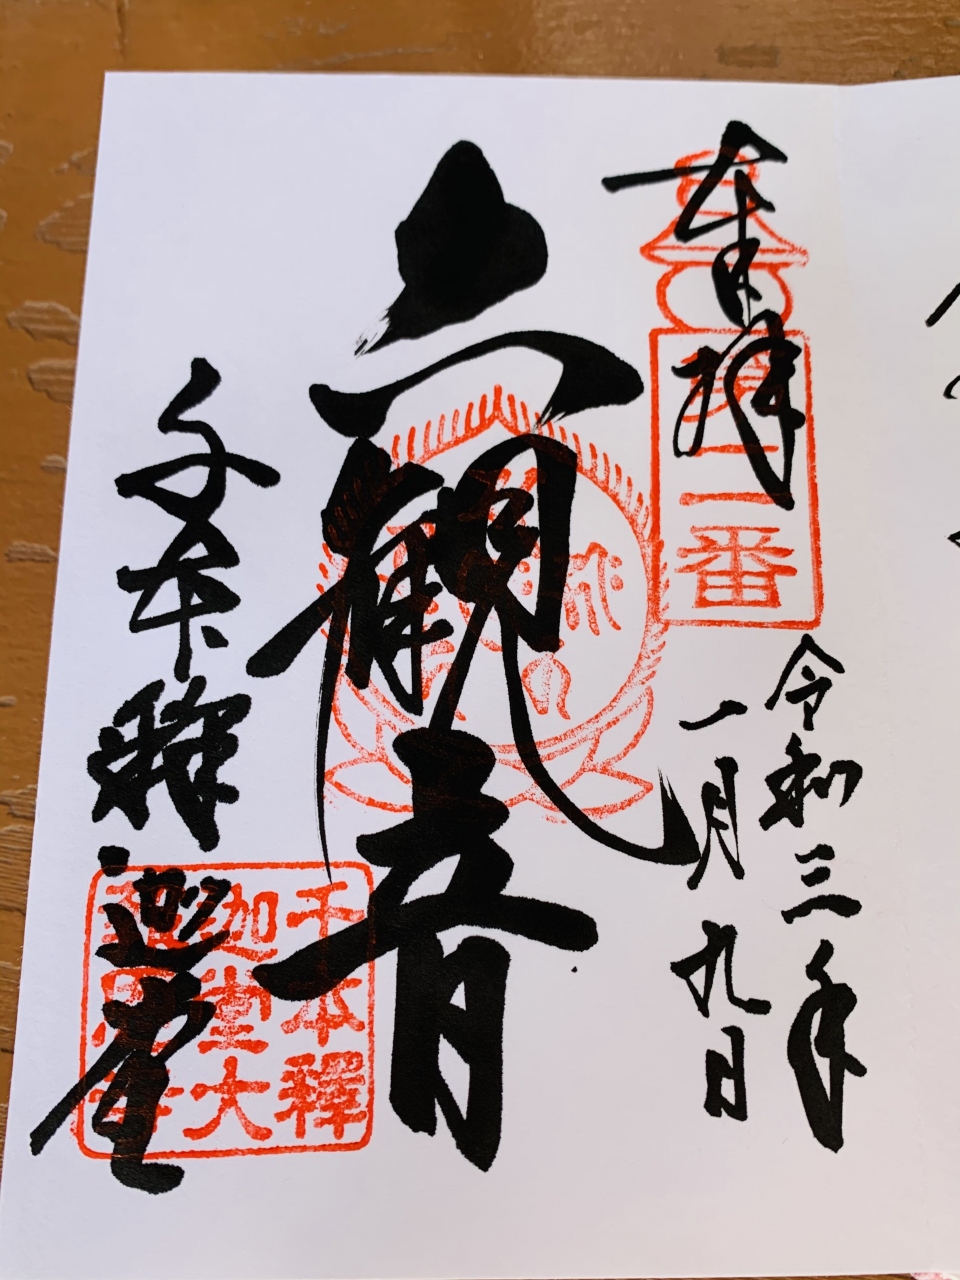 奉拝
第二番
令和三年
一月九日
六観音
千本釋迦堂
千本釋
迦堂大
報恩寺